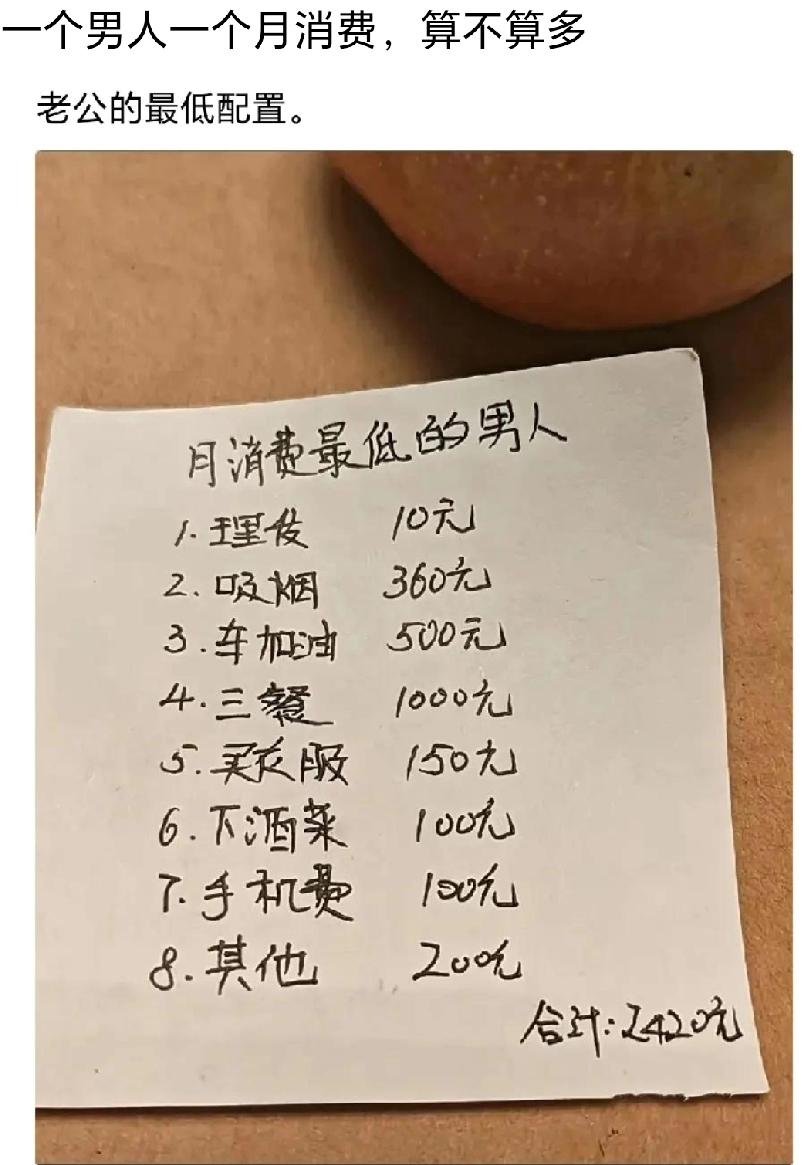 一个男人一个月消费，算不算多
老公的最低配置。
月消费最低的男人
1. 理发 10元
2. 吸烟 360元
3. 车加油 500元
4. 三餐 1000元
5. 买衣服 150元
6. 下酒菜 100元
7. 手机费 100元
8. 其他 200元
合计: 2420元